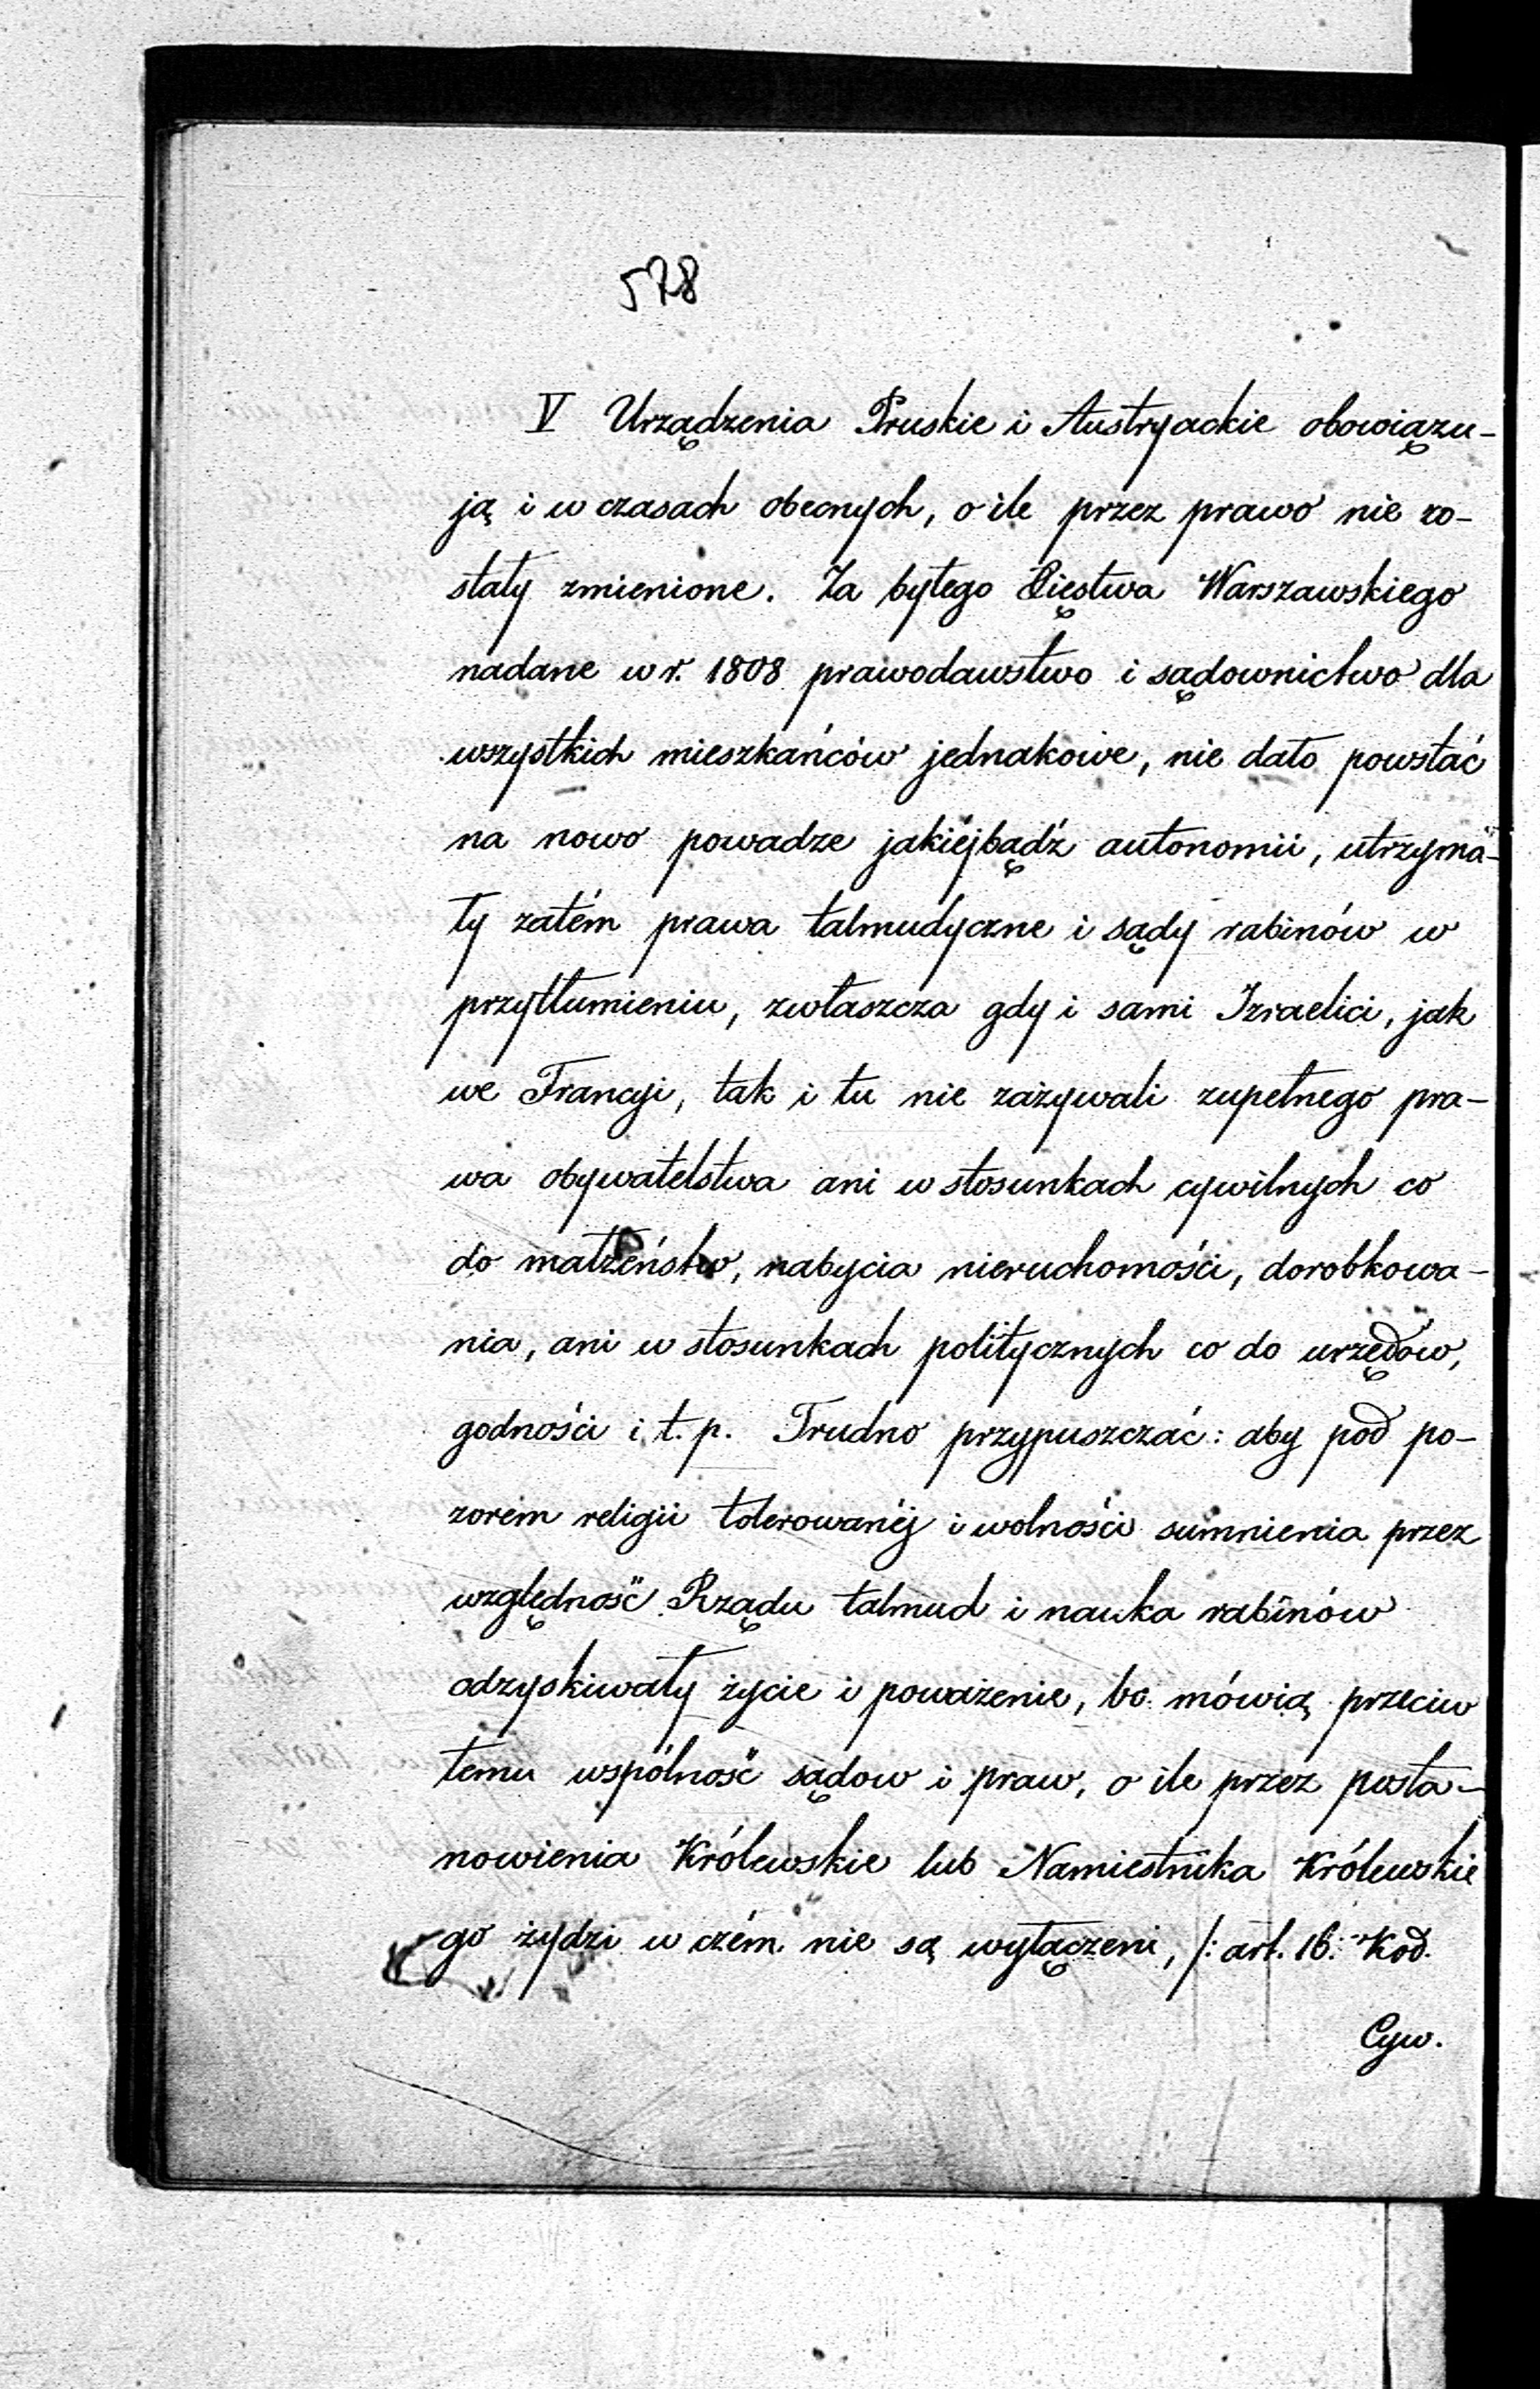 578
V Urządzenia Pruskie i Austryackie obowiązu-
ją i w czasach obecnych, o ile przez prawo nie zo-
stały zmienione. Za byłego Xięstwa Warszawskiego
nadane w r. 1808 prawodawstwo i sądownictwo dla
wszystkich mieszkańców jednakowe, nie dało powstać
na nowo powadze jakiéjbądź autonomii, utrzyma-
ły zatém prawa talmudyczne i sądy rabinów w
przytłumieniu, zwłaszcza gdy i sami Izraelici, jak
we Francyi, tak i tu nie zażywali zupełnego pra-
wa obywatelstwa ani w stosunkach cywilnych co
do małżeństw, nabycia nieruchomości, dorobkowa-
nia, ani w stosunkach politycznych co do urzędow,
godności i t. p. Trudno przypuszczać: aby pod po-
zorem religii tolerowanéj i wolności sumnienia przez
względność Rządu talmud i nauka rabinów
odzyskiwały życie i poważenie, bo mówią przeciw
temu wspólność sądow i praw, o ile przez posta-
nowienia Królewskie lub Namiestnika Królewskie
go żydzi w czém nie są wyłączeni, /: art. 16: Kod.
Cyw.